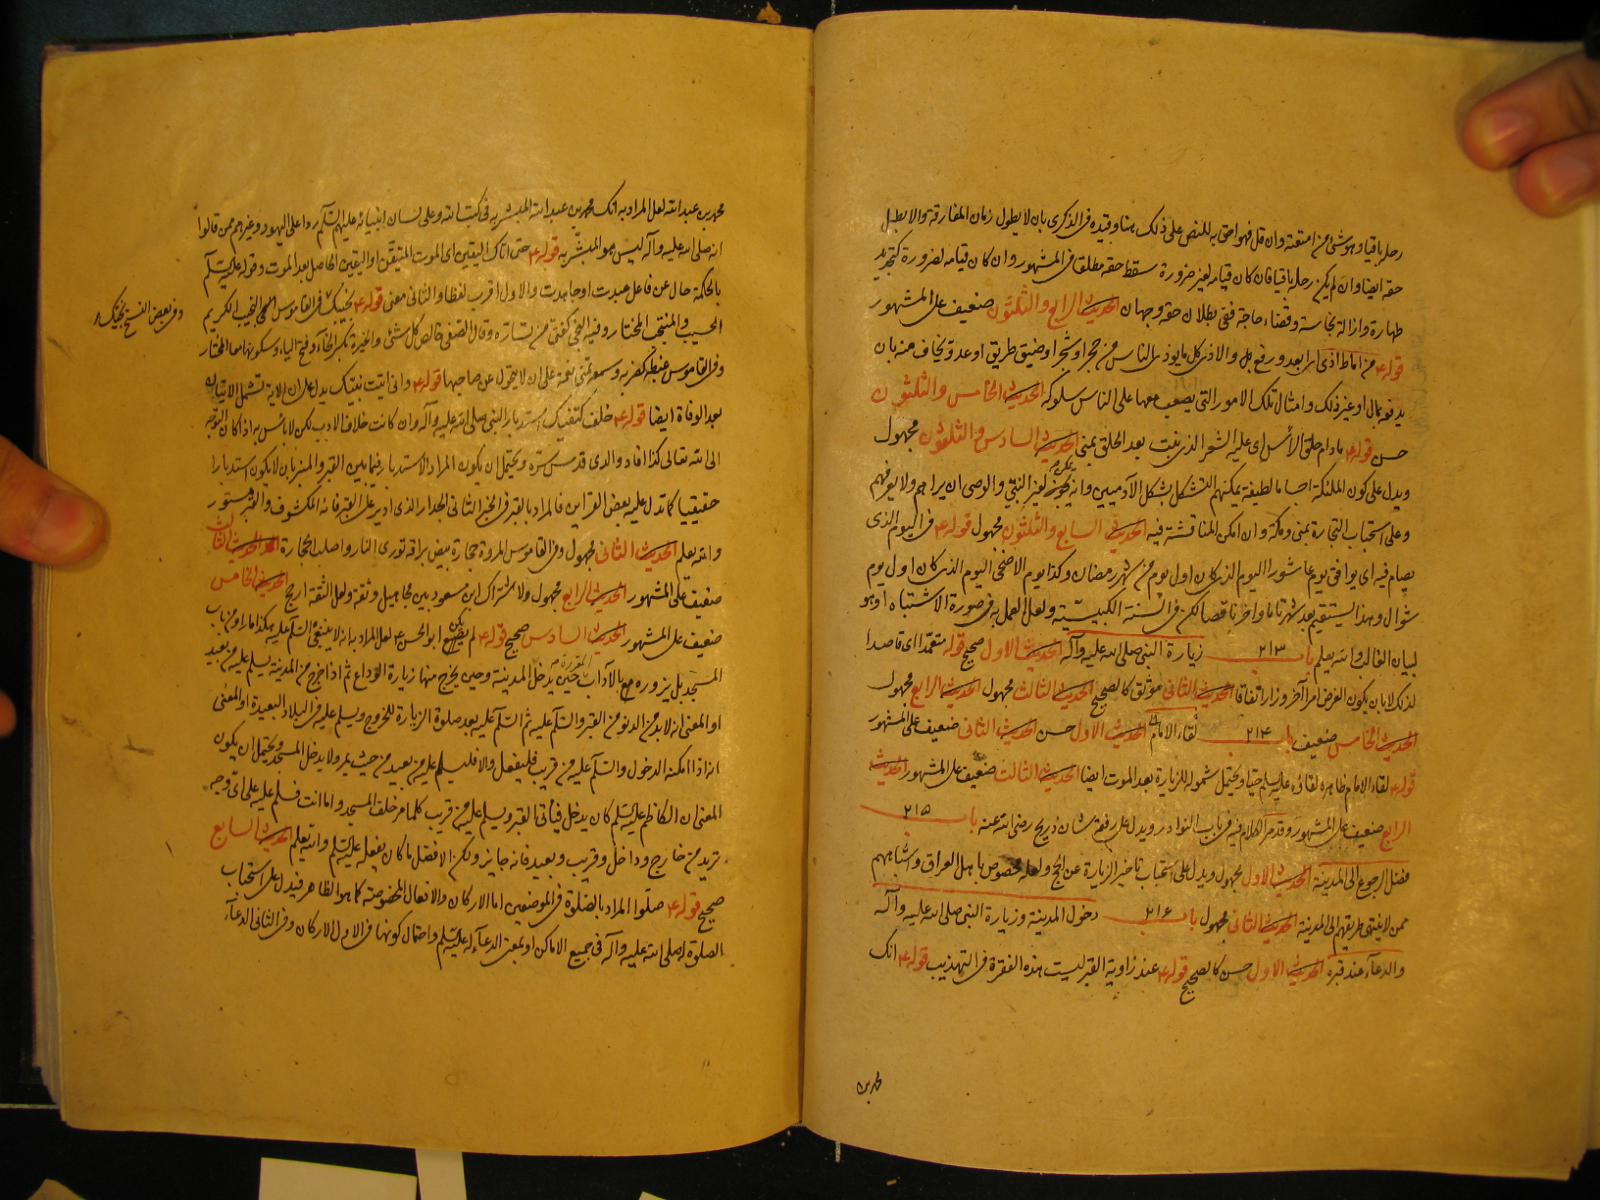 رحله باقيا وهو شئ من امتعته وان قل فهو احق به للنص على ذلك هنا وقيده في الذكرى بان لا يطول زمان المفارقة والا بطل
حقه ايضا وان لم يكن رحله باقيا فان كان قيامه لغير ضرورة سقط حقه مطلقا في المشهور وان كان قيامه لضرورة كتجديد
طهارة وازالة نجاسة وقضاء حاجة ففي بطلان حقه وجهان الحديث الرابع والثلثون ضعيف على المشهور
قوله ع من اماط اذى اى ابعد ورفع والاذى كل ما يوذى الناس من حجر او شجر او ضيق طريق او عدو يخاف منه بان
يدفعه بمال او غير ذلك وامثال تلك الامور التى يصعب معها على الناس سلوكه الحديث الخامس والثلثون
حسن قوله ع مادام حلق الرأس اى عليه الشعر الذى ينبت بعد الحلق بمنى الحديث السادس والثلثون مجهول
ويدل على كون الملئكة اجساما لطيفة يمكنهم التشكل بشكل الآدميين وانه يمكن لغير النبى والوصى ان يراهم ولا يعرفهم
وعلى استحباب التجارة بمنى ومكة وان امكن المناقشة فيه الحديث السابع والثلثون مجهول قوله ع فى اليوم الذى
يصام فيه اى يوافق يوم عاشورا اليوم الذى كان اول يوم من شهر رمضان وكذا يوم الاضحى اليوم الذى كان اول يوم
شوال وهذا يستقيم بعد شهر تاما وآخر ناقصا لكن فى السنة الكبيسية ولعل العمل به فى صورة الاشتباه او هو
لبيان الغالب والله يعلم باب ٢١٣ زيارة النبى صلى الله عليه وآله الحديث الاول صحيح قوله متعمدا اى قاصدا
لذلك لا بان يكون الغرض امرا آخر وزار اتفاقا الحديث الثانى موثق كالصحيح الحديث الثالث مجهول الحديث الرابع مجهول
الحديث الخامس ضعيف باب ٢١٤ لقاء الامام الحديث الاول حسن الحديث الثانى ضعيف على المشهور
قوله لقاء الامام ظاهره لقائه عليه السلم حيا ويحتمل شموله للزيارة بعد الموت ايضا الحديث الثالث ضعيف على المشهور الحديث
الرابع ضعيف على المشهور وقد مر الكلام فيه فى باب النوادر ويدل على رفعة شان ذريح رضى الله عنه باب ٢١٥
فضل الرجوع الى المدينة الحديث الاول مجهول ويدل على استحباب تاخير الزيارة عن الحج ولعله مخصوص باهل العراق واشباههم
ممن لا ينتهى طريقهم الى المدينة الحديث الثانى مجهول باب ٢١٦ دخول المدينة وزيارة النبى صلى الله عليه وآله
والدعاء عند قبره الحديث الاول حسن كالصحيح قوله ع عند زاوية القبر ليست هذه الفقرة فى التهذيب قوله ع انك
محمد بن
محمد بن عبد الله لعل المراد به انك محمد بن عبد الله المبشر به فى كتب الله وعلى لسان انبيائه عليهم السلم ردا على اليهود وغيرهم ممن قالوا
انه صلى الله عليه وآله ليس هو المبشر به قوله ع حتى اتاك اليقين اى الموت المتيقن او اليقين الحاصل بعد الموت وقوله عليه السلم
بالحكمة حال عن فاعل عبدت او جاهدت والاول اقرب لفظا والثانى معنى قوله ع نجيبك فى القاموس النجيب الكريم
الحسيب والمنتجب المختار وفيه النجى كغنى من تساره وقال الصفى خالص كل شئ والخيرة بكسر الخاء وفتح الياء وسكونها معا المختار
وفى بعض النسخ نجيك
وفى القاموس غبطه كضربه وسمعه تمنى نعمة على ان لا يتحول عن صاحبها قوله ع وانى اتيت نبيك يدل على ان الاية تشمل الاتيان
بعد الوفاة ايضا قوله ع خلف كتفيك استدبار النبى صلى الله عليه وآله وان كانت خلاف الادب لكن لا باس به اذا كان التوجه
الى الله تعالى كذا افاد والدى قدس سره ويحتمل ان يكون المراد الاستدبار فيما بين القبر والمنبر بان لا يكون استدبارا
حقيقيا كما تدل عليه بعض القراين فالمراد بالقبر فى الخبر الثانى الجدار الذى ادير على القبر فانه المكشوف والقبر مستور
والله يعلم الحديث الثانى مجهول وفى القاموس المروة حجارة بيض براقة تورى النار واصلب الحجارة الحديث الثالث
ضعيف على المشهور الحديث الرابع مجهول ولاشتراك ابن مسعود بين مجاهيل وثقة ولعل الثقة ارجح الحديث الخامس
ضعيف على المشهور الحديث السادس صحيح قوله ع لم يكن ابو الحسن ع لعل المراد به انه لا ينبغى السلم عليه هكذا مارا من باب
المسجد بل يزوره مع الآداب المقررة حين يدخل المدينة وحين يخرج منها زيارة الوداع ثم اذا خرج من المدينة يسلم عليه من بعيد
او المعنى انه لا بد من الدنو من القبر والسلم عليه ثم السلم عليه بعد صلوة الزيارة للخروج ويسلم عليه فى البلاد البعيدة او المعنى
انه اذا امكنه الدخول والسلم عليه من قريب فليفعل والا فليسلم عليه من بعيد من حيث يمر ولا يدخل المسجد ويحتمل ان يكون
المعنى ان الكاظم عليه السلم كان يدخل فياتى القبر ويسلم عليه من قريب كلما مر خلف المسجد واما انت فسلم عليه على اى وجه
تريد من خارج وداخل وقريب وبعيد فانه جايز ولكن الافضل ما كان يفعله عليه السلم والله يعلم الحديث السابع
صحيح قوله ع صلوا المراد بالصلوة فى الموضعين اما الاركان والافعال المخصوصة كما هو الظاهر فيدل على استحباب
الصلوة له صلى الله عليه وآله فى جميع الاماكن او بمعنى الدعاء له عليه السلم واحتمال كونها فى الاول الاركان وفى الثانى الدعاء